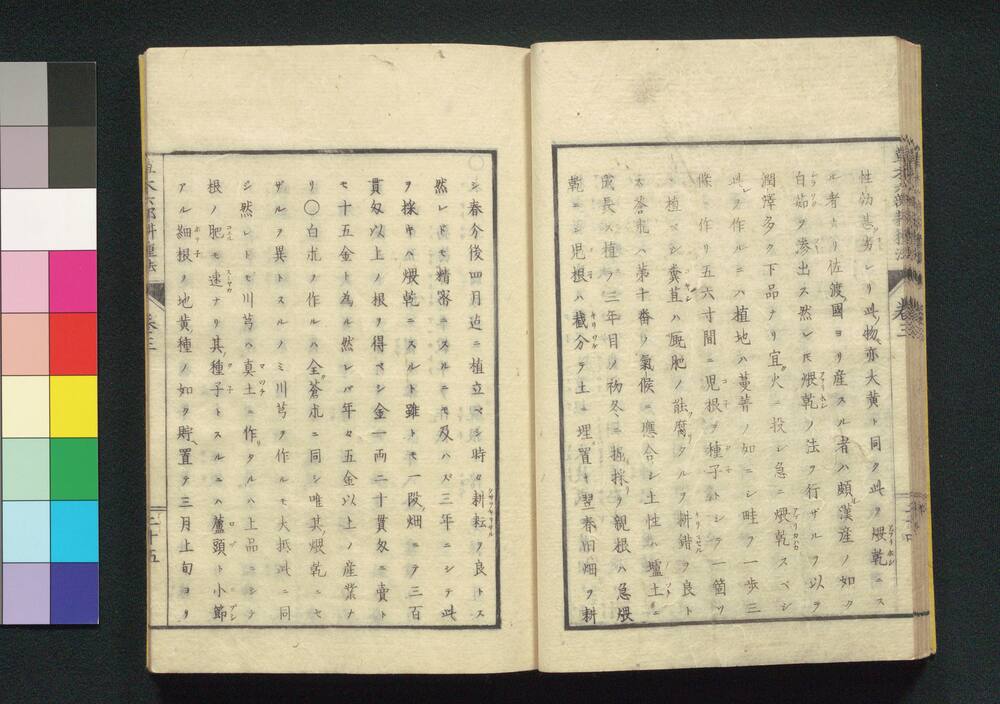 性劣レリ此物亦大黄ト同ク此ヲ煨乾ニス
ル者ナリ佐渡國ヨリ産スル者ハ頗漢産ノ如ク
白茹ヲ滲出ス然レ𪜈煨乾ノ法ヲ行ザルヲ以テ
潤澤多ク下品ナリ宜火ニ投シ急ニ煨乾スベシ
此ヲ作ルニハ植地ハ蔓菁ノ如ニシ畦ヲ一歩三
條ト作リ五六寸間ニ児根ヲ種子トシテ一箇ツ
植ベシ糞苴ハ厩肥ノ能腐タルヲ耕錯ヲ良ト
ス蒼朮ハ第十番ノ氣候ニ應合シ土性ハ壚土ニ
成長ス植テ三年目ノ初冬ニ掘採テ親根ハ急煨
乾ニシ児根ハ截分テ土ニ埋置キ翌春旧畑ヲ耕
シ春分後四月迠ニ植立ベシ時々耕耘ヲ良トス
然レドモ精密ニスルニモ及ハズ三年ニシテ此
ヲ採キハ煨乾ニスルト雖トモ一段畑ニテ三百
貫匁以上ノ根ヲ得ベシ金一両二十貫匁ニ賣ト
モ十五金ト為ル然レバ年々五金以上ノ産業ナ
リ〇白朮ノ作ルハ全蒼朮ニ同シ唯其煨乾ニセ
ザルヲ異トスルノミ川芎ヲ作ルモ大抵此ニ同
シ然レトモ川芎ハ真土ニ作リタルハ上品ニシテ
根ノ肥モ速ナリ其種子トスルニハ蘆頭ト小節
アル細根ノ地黄種ノ如ク貯置テ三月上旬ヨリ
卷三
二十五